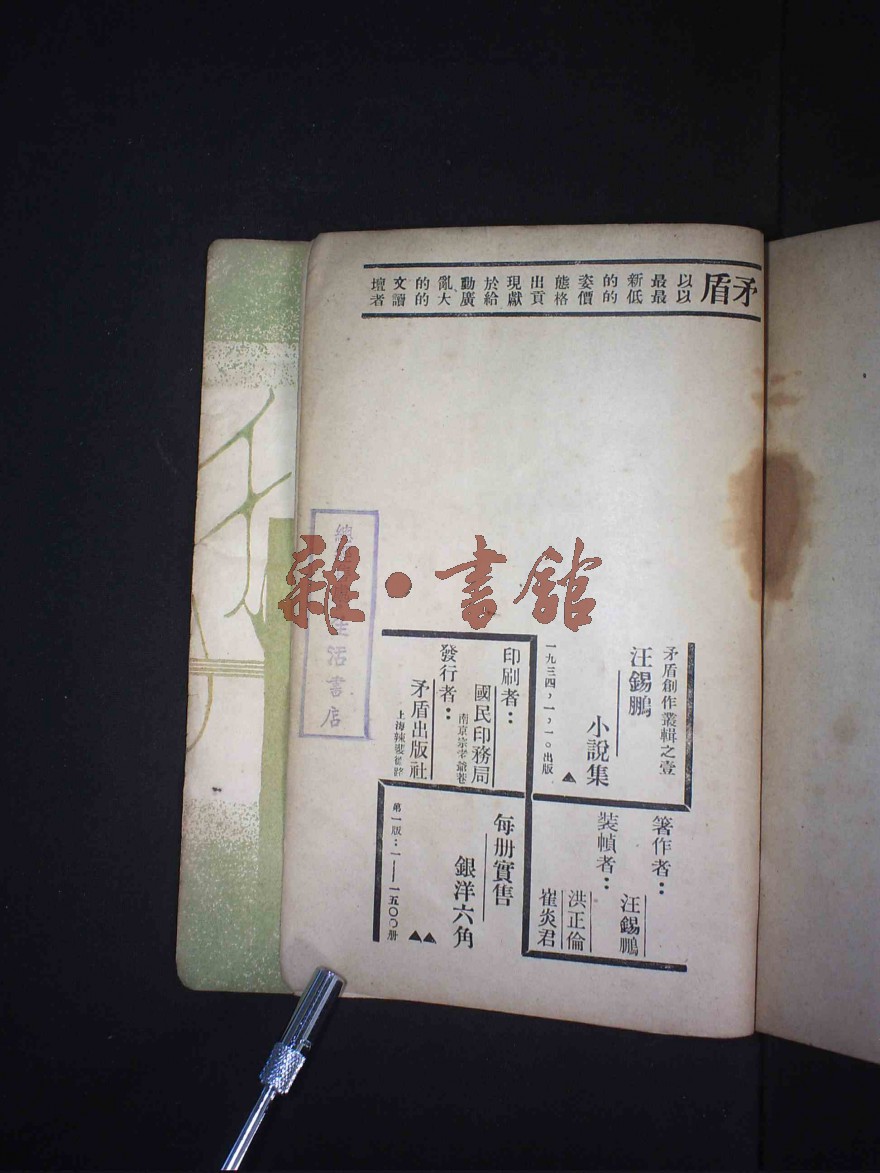 矛盾
以最新的姿態出現於動亂的文壇
以最低的價格貢獻給廣大的讀者
矛盾創作叢輯之壹
汪錫鵬
小說集
一九三四，一，一〇出版
印刷者：
國民印務局
南京宗老爺巷
發行者：
矛盾出版社
上海辣斐德路
箸作者：
汪錫鵬
裝幀者：
洪正倫
崔炎君
每册實售
銀洋六角
第一版：一——一五〇〇册
生活書店
雜·書館